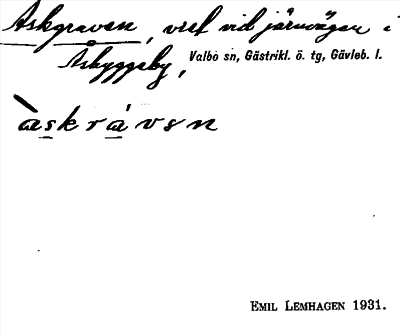 Askgraven, vret vid järnvägen i
Åsbyggeby, Valbo sn, Gästrikl. ö. tg, Gävleb. l.
àskrávsn
EMIL LEMHAGEN 1931.